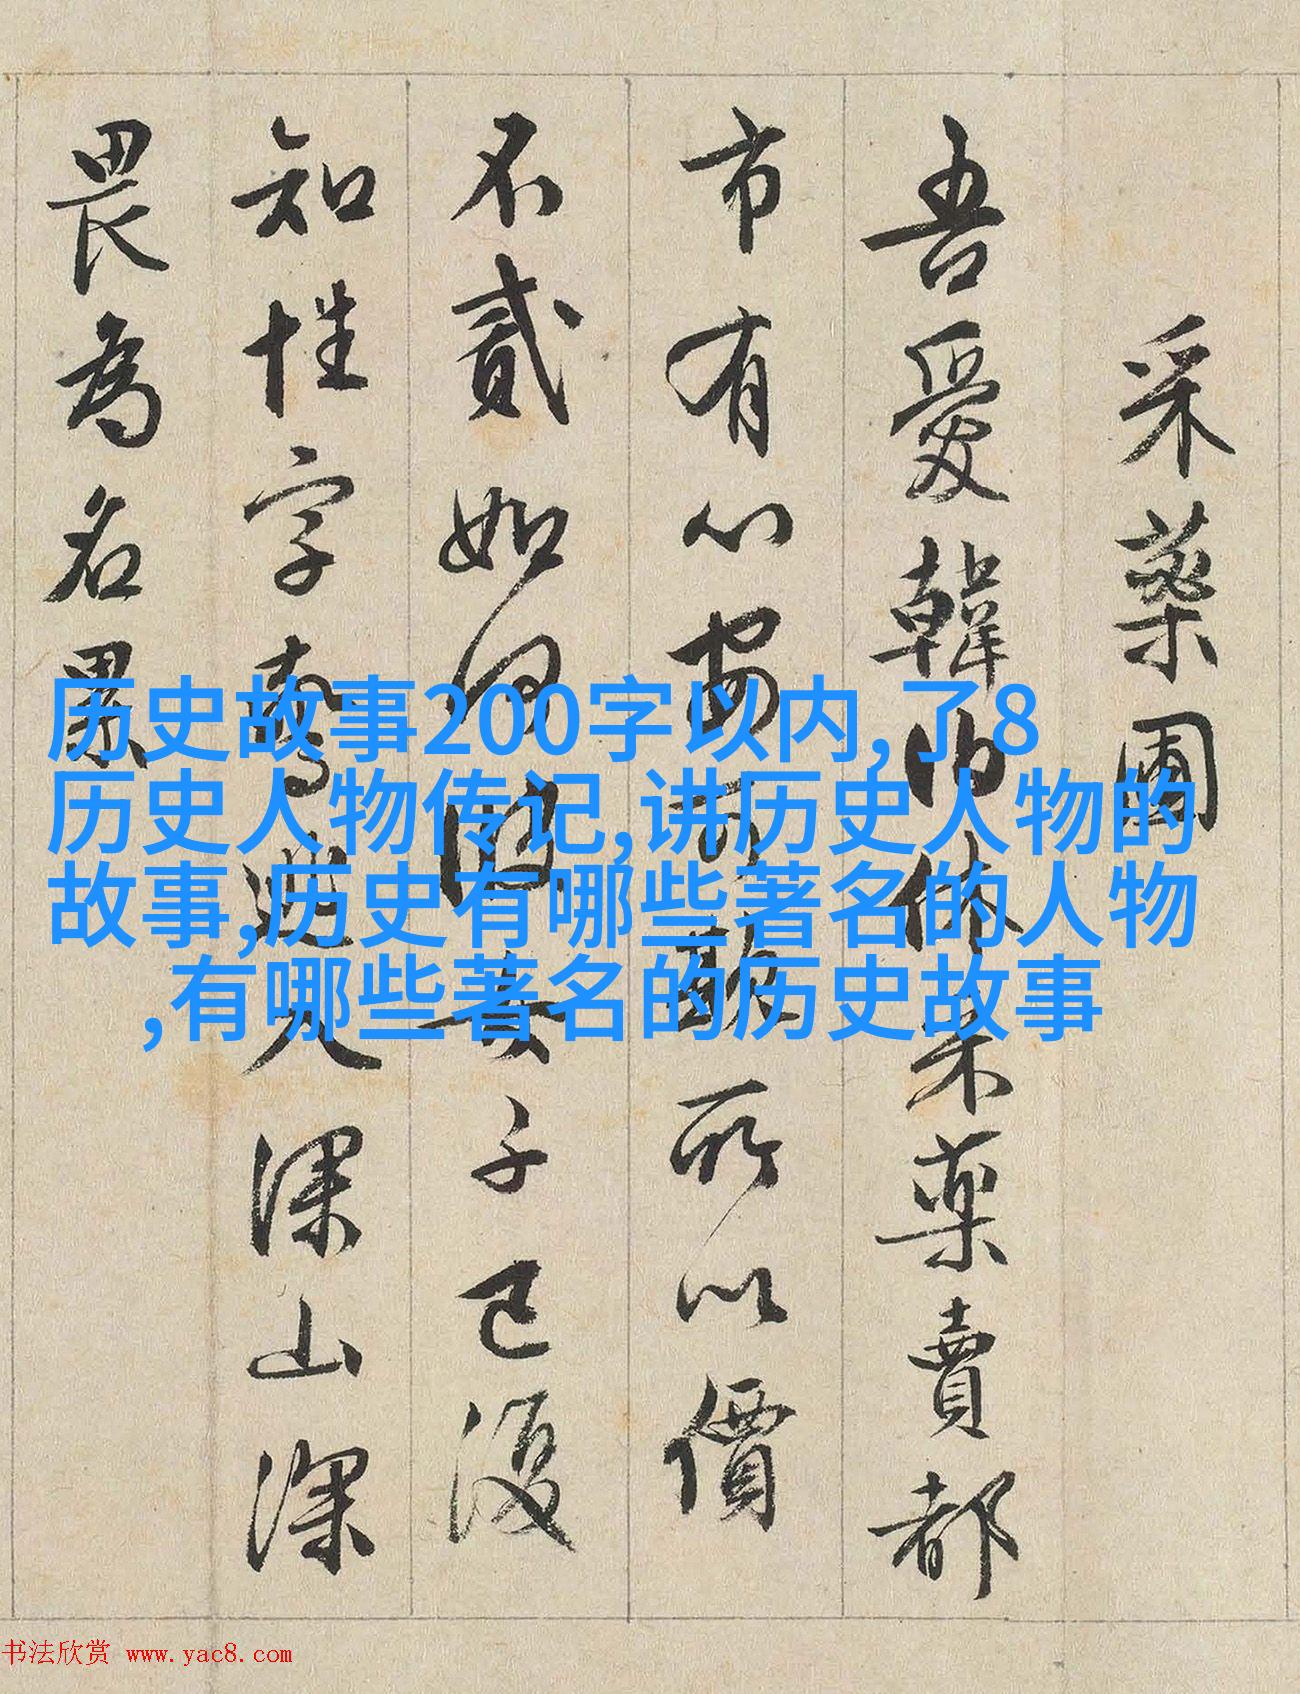 采藥圃
吾愛韓伯休采藥賣都
市有心安可欺所以價
不貳如何彼女子已復
知性字驚逃入深山深
畏為名累
历史故事200字以内,了8
历史人物传记,讲历史人物的
故事,历史有哪些著名的人物
,有哪些著名的历史故事
书法欣赏 www.yac8.com